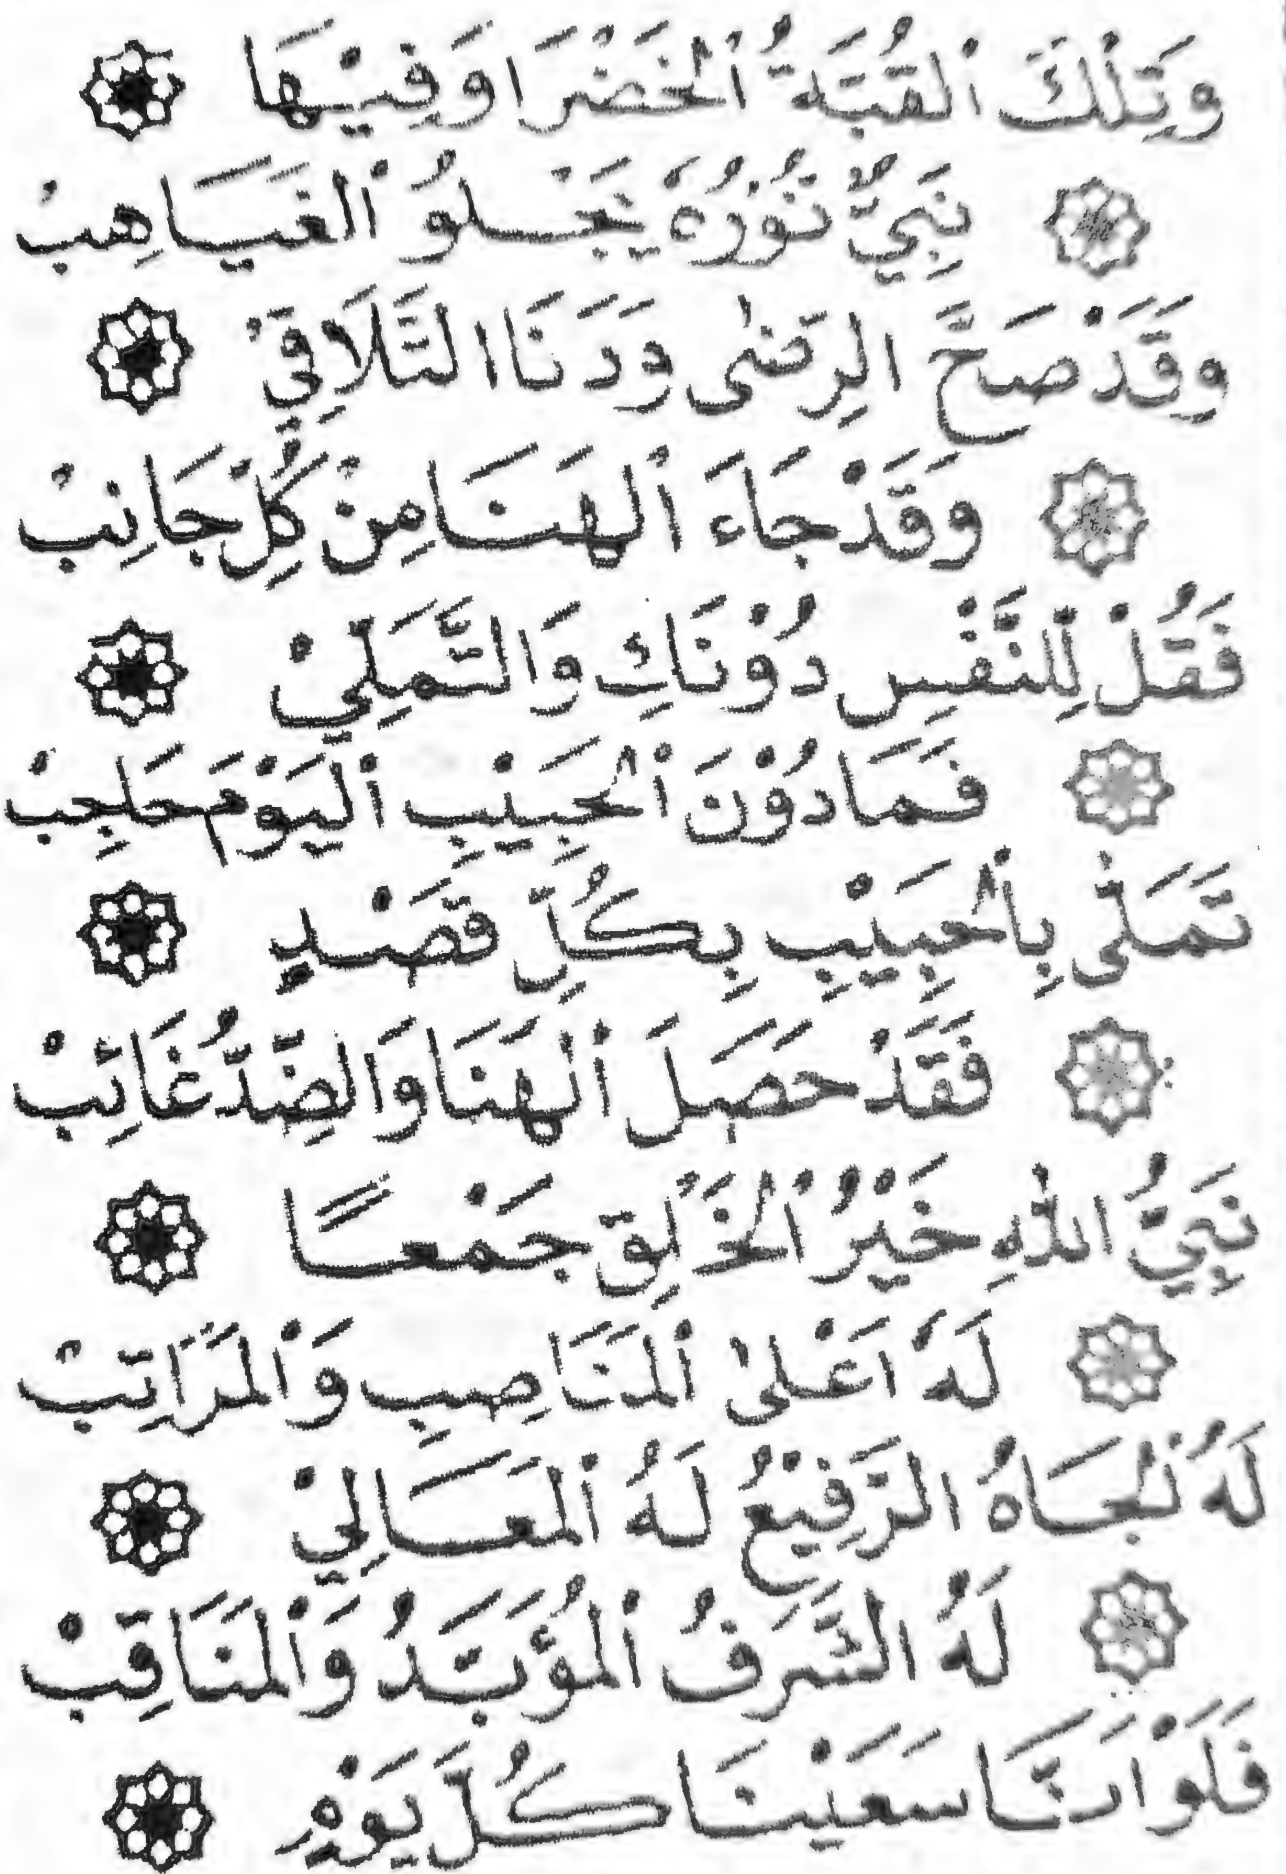 وَتِلْكَ ٱلْقُبَّةُ ٱلْخَضْرَا وَفِيْهَا
نَبِيٌّ نُوْرُهُ يَجْلُو ٱلْغَيَاهِبْ
وَقَدْ صَحَّ الرِّضَى وَدَنَا التَّلَاقِيْ
وَقَدْ جَاءَ ٱلْهَنَا مِنْ كُلِّ جَانِبْ
فَقُلْ لِلنَّفْسِ دُوْنَكِ وَالتَّمَلِّيْ
فَمَا دُوْنَ ٱلْحَبِيْبِ ٱلْيَوْمَ حَاجِبْ
تَمَلَّىْ بِٱلْحَبِيْبِ بِكُلِّ قَصْدٍ
فَقَدْ حَصَلَ ٱلْهَنَا وَالضِّدُّ غَائِبْ
نَبِيُّ اللهِ خَيْرُ ٱلْخَلْقِ جَمْعًا
لَهُ اَعْلَىٰ ٱلْمَنَاصِبِ وَٱلْمَرَاتِبْ
لَهُ ٱلْجَاهُ الرَّفِيْعُ لَهُ ٱلْمَعَالِيْ
لَهُ الشَّرَفُ ٱلْمُؤَبَّدُ وَٱلْمَنَاقِبْ
فَلَوْ اَنَّا سَعَيْنَا كُلَّ يَوْمٍ